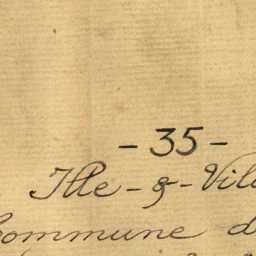 - 35 -
Ille-&-Vil
Commune d